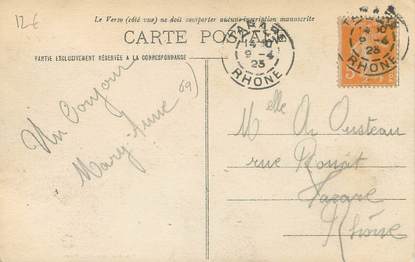 12€
Le Verso (côté vue) ne doit comporter aucune inscription manuscrite
CARTE POSTALE
PARTIE EXCLUSIVEMENT RÉSERVÉE A LA CORRESPONDANCE
TARARE
14 30
9-4
23
RHONE
TARARE
14 30
9-4
23
RHONE
Un bonjour
Mary Anne
69)
Melle A.
rue
Tarare
Rhône